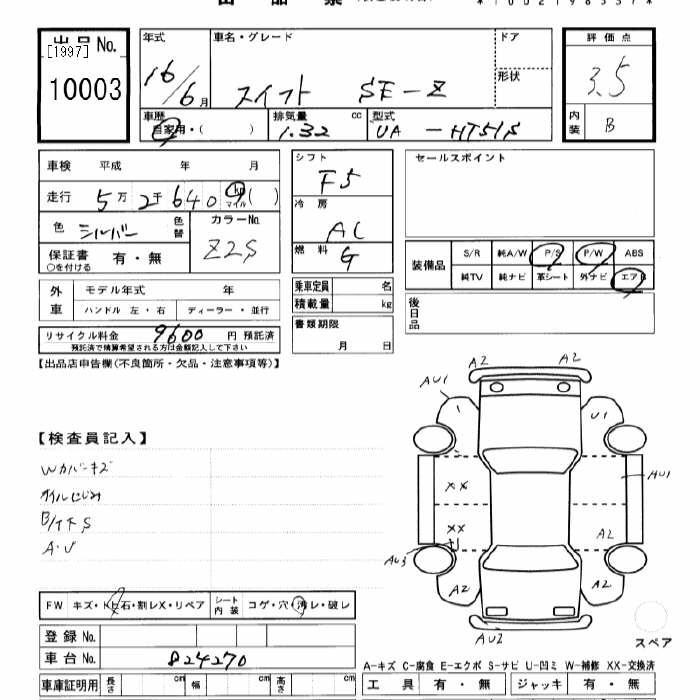 出品No.
[1997]
10003
年式
16/6月
車名・グレード
スイフト SE-Z
ドア
形状
評価点
3.5
内装
B
車歴
自家用・( )
排気量 cc
1.32
型式
UA - HT51S
車検 平成 年 月
走行 5万2千640 km マイル ( )
色 シルバー 色替
カラーNo.
Z2S
保証書 有・無
○を付ける
シフト
F5
冷房
AC
燃料
G
セールスポイント
装備品
S/R 純A/W P/S P/W ABS
純TV 純ナビ 革シート 外ナビ エアB
外車
モデル年式 年
ハンドル 左・右 ディーラー・並行
乗車定員 名
積載量 kg
後日品
リサイクル料金 9600 円 預託済
預託済で精算希望される方は金額記入して下さい
書類期限
月 日
【出品店申告欄(不良箇所・欠品・注意事項等)】
A2 A2
AU1
U1
【検査員記入】
Wカバーキズ
オイルにじみ
B/T下S
A・U
XX
AU1
XX
A2
AU3
A2 A2
AU2
スペア
FW キズ・トビ石・割レX・リペア
シート内装 コゲ・穴・汚レ・破レ
登録No.
車台No. 824270
A-キズ C-腐食 E-エクボ S-サビ U-凹ミ W-補修 XX-交換済
車庫証明用 長さ cm 幅 cm 高さ cm
工具 有・無 ジャッキ 有・無